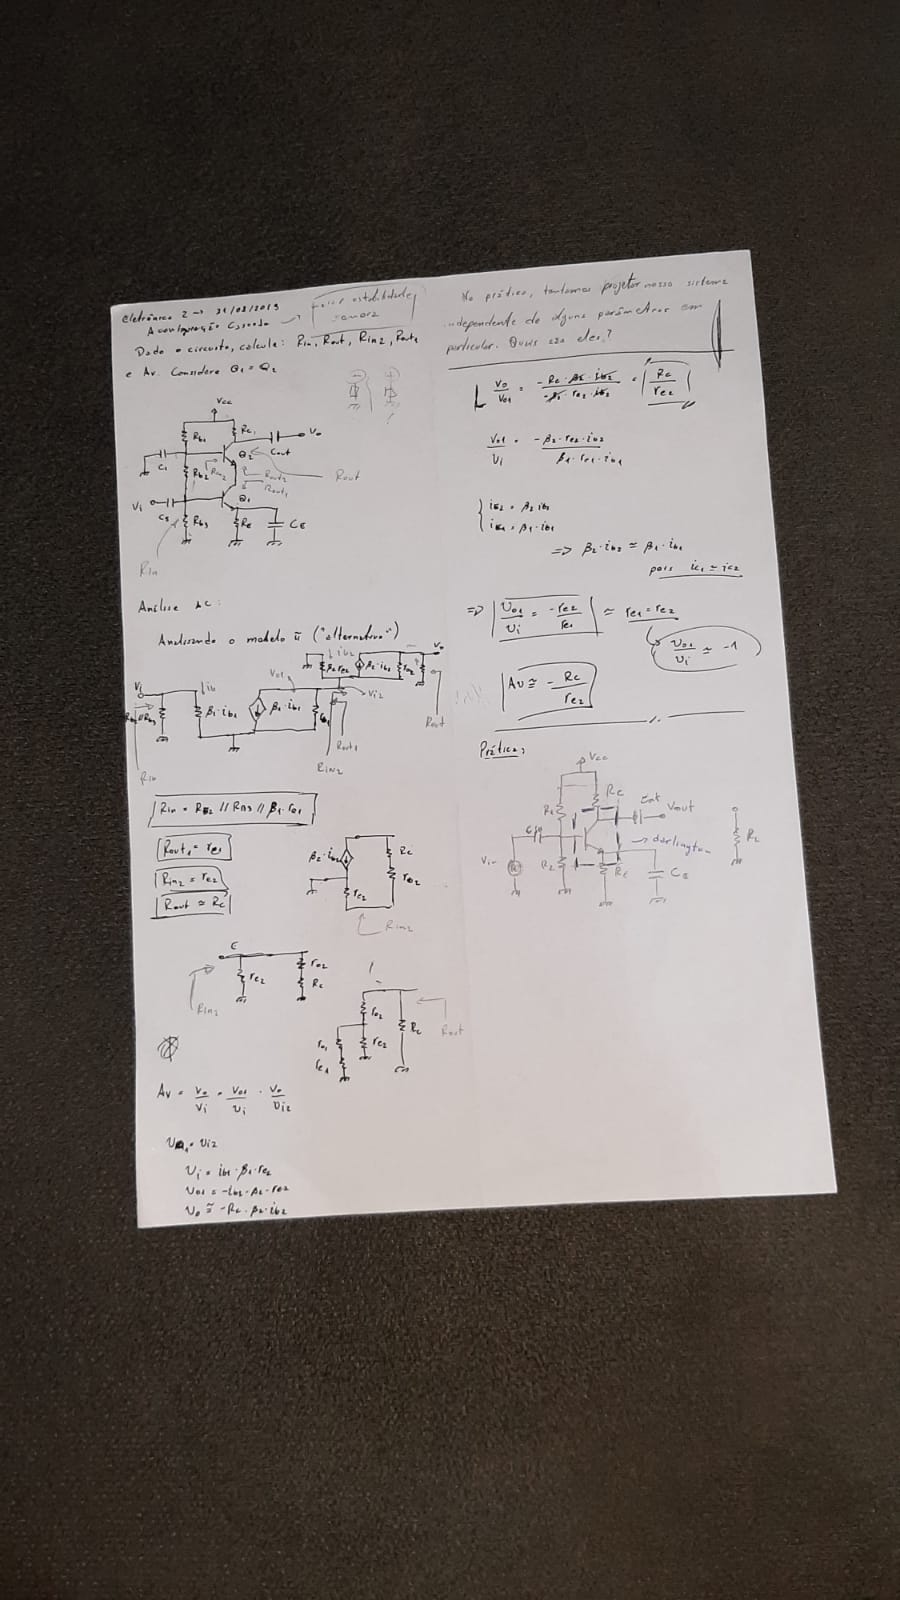 Eletrônica 2 → 31/08/2019
A configuração Cascode → maior estabilidade
Dado o circuito, calcule: Rin, Rout, Rin2, Rout1
e Av. Considere Q1 = Q2
Vcc
Rb1
Rc
Vo
Cout
C1
Q2
Rb2
Rin2
Rout2
Rout1
Rout
Vi
Q1
Cs
Rb3
RE
CE
Rin
Análise AC:
Analisando o modelo π ("alternativo")
ib2
Vo
β2 re2
β2·ib2
ro2
Vo1
Vi2
Vi
ib
β1·ib1
Rout
Rout1
Rin2
Rin
Rin = RB2 // RB3 // β1·re1
Rout1 = re2
Rin2 = re2
Rout ≃ Rc
β2·ib2
Rc
re2
ro2
Rin2
E
re2
ro2
Rc
Rin2
ro2
ro1
re2
Rc
re1
Rout
Av = Vo/Vi = Vo1/Vi · Vo/Vi2
Vo1 = Vi2
Vi = ib1·β1·re2
Vo1 = -ib2·β2·re2
Vo ≅ -Rc·β2·ib2
Na prática, tentamos projetar nosso sistema
independente de alguns parâmetros em
particular. Quais são eles?
Vo/Vo1 = -Rc·β2·ib2/-β2·re2·ib2 = Rc/re2
Vo1/Vi = -β2·re2·ib2/β1·re1·ib1
ic2 = β2 ib2
ic1 = β1·ib1
=> β2·ib2 ≃ β1·ib1
pois ic1 ≃ ic2
=> Vo1/Vi = -re2/re1 ≃ re1 = re2
Vo1/Vi ≃ -1
Av ≅ - Rc/re2
Prática:
Vcc
R1
Rc
Vout
Cin
→ darlington
Vin
R2
RE
CE
RL